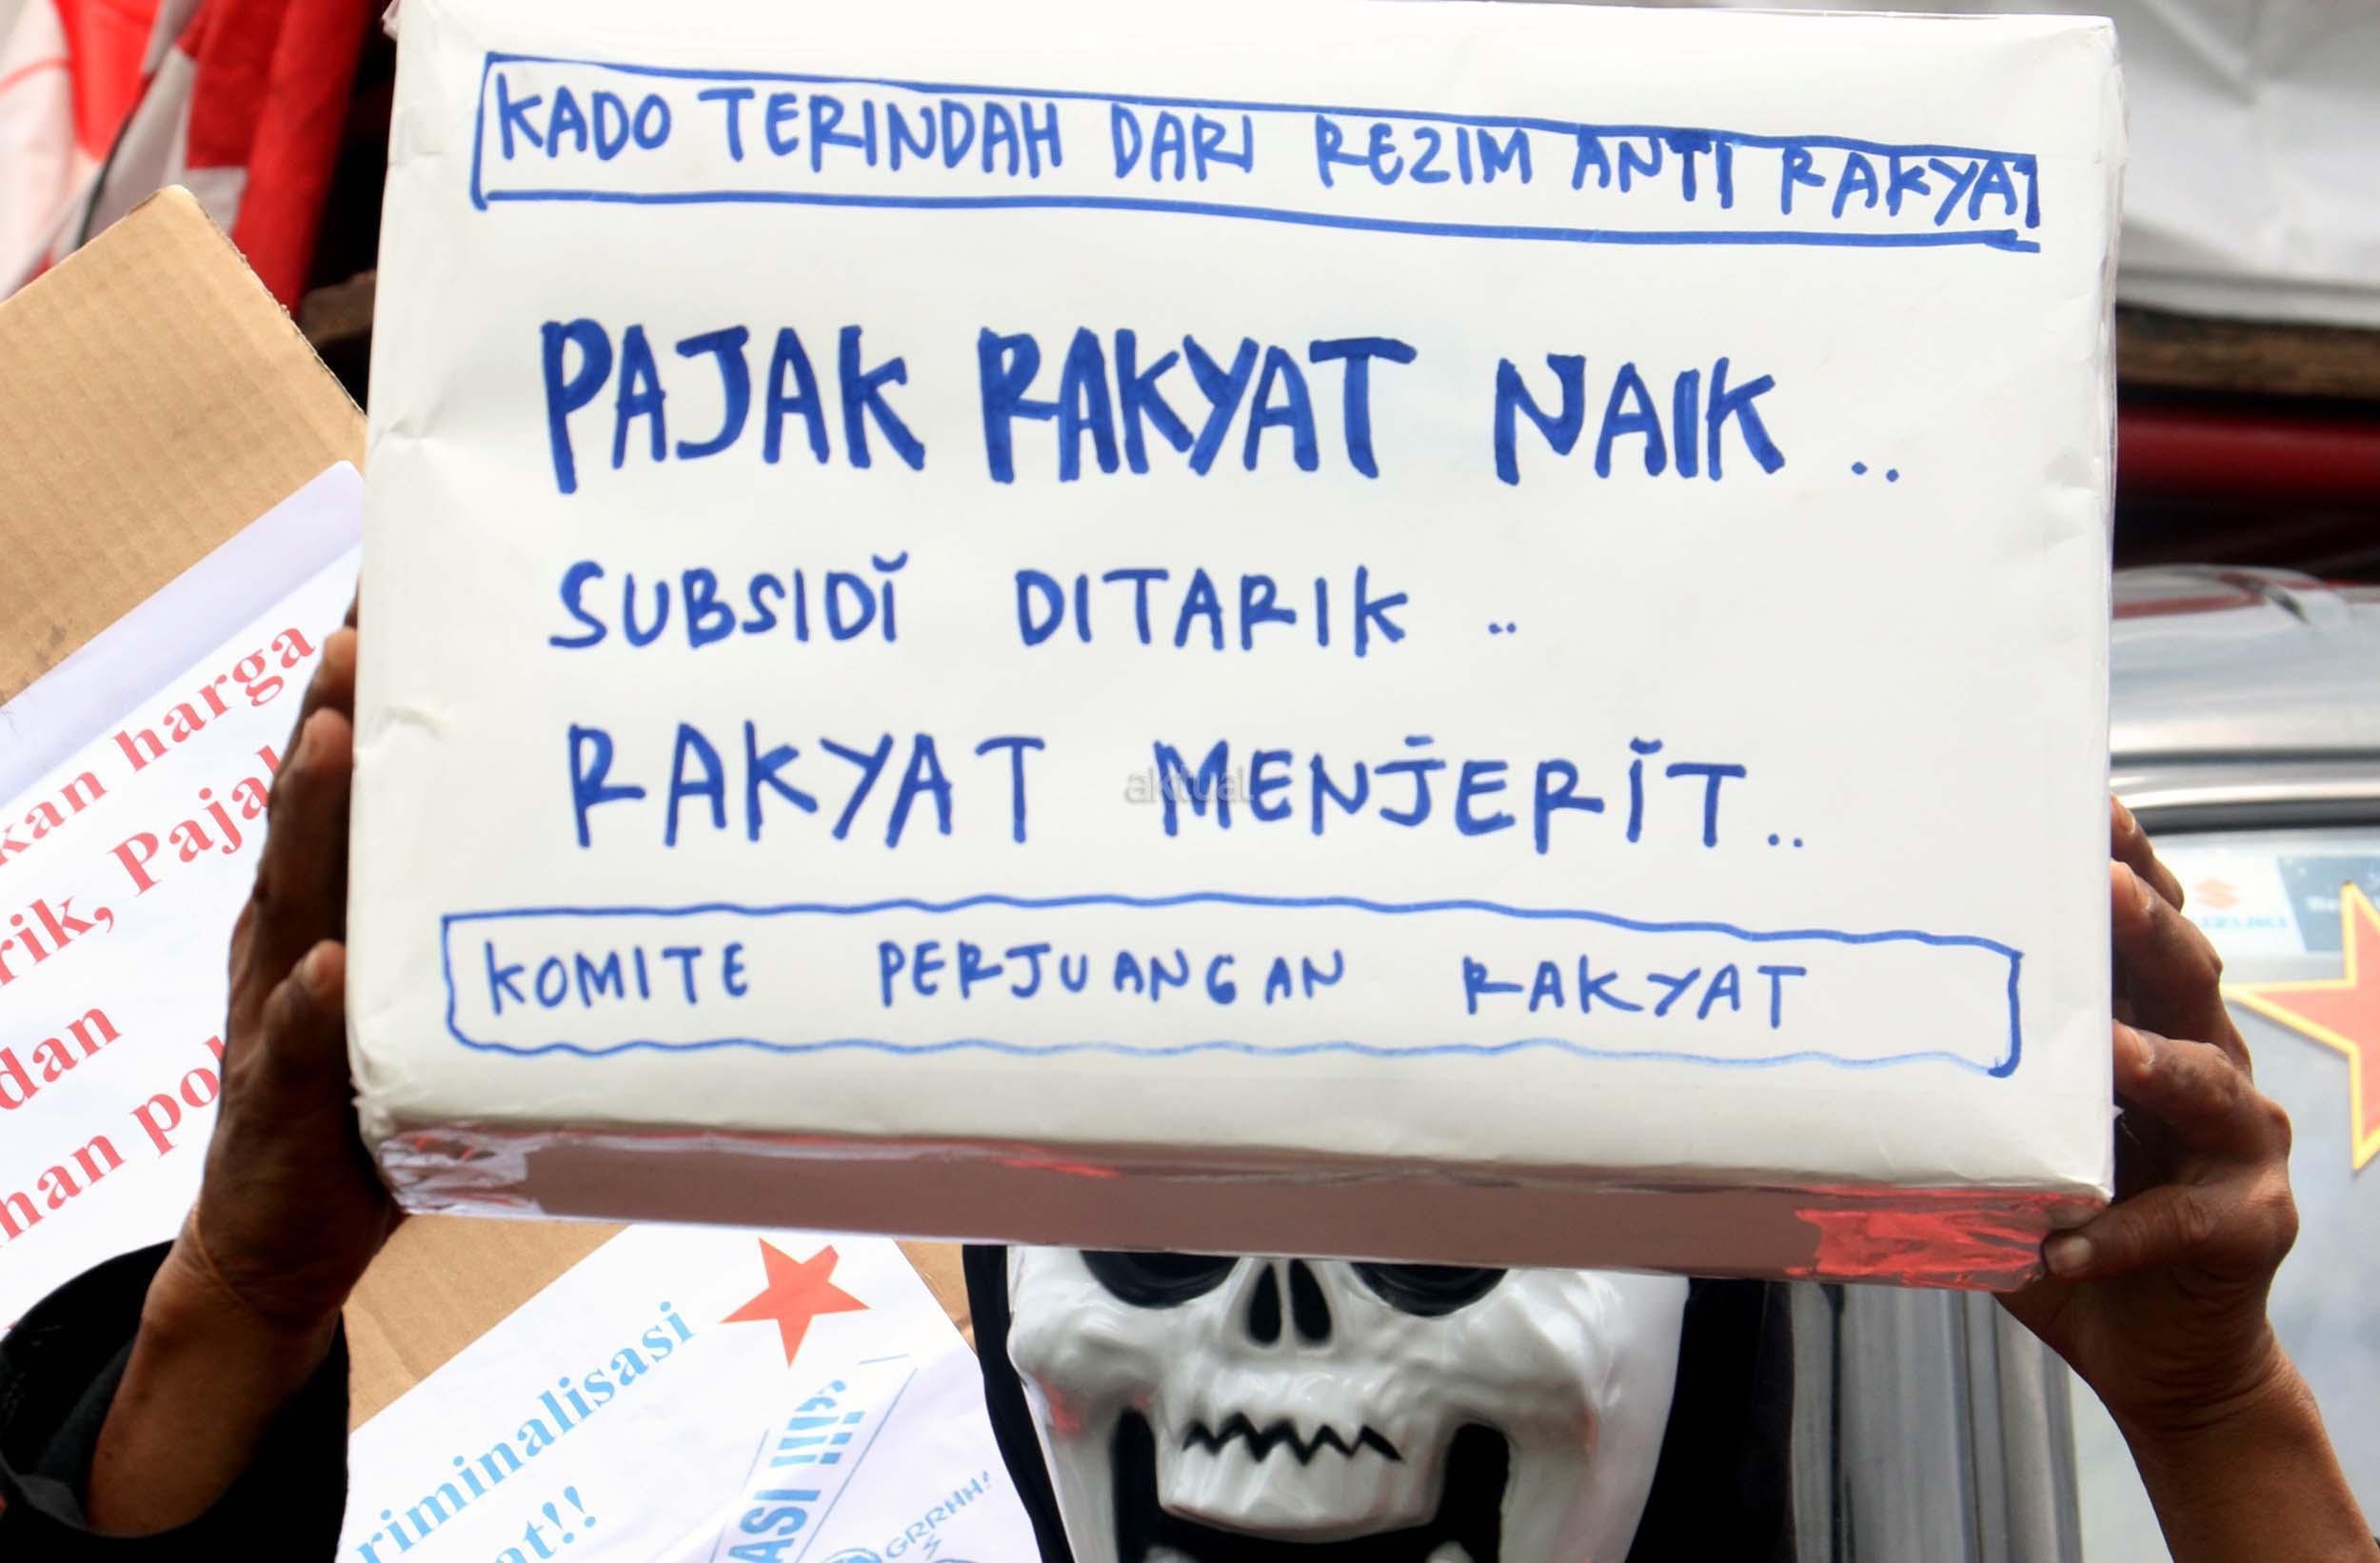 KADO TERINDAH DARI REZIM ANTI RAKYAT
PAJAK RAKYAT NAIK ..
SUBSIDI DITARIK ..
RAKYAT MENJERIT..
aktual
KOMITE PERJUANGAN RAKYAT
kan harga
rik, Pajak
dan
han pol
riminalisasi
at!!
ASI !!!"
GRRHH!
SUZUKI